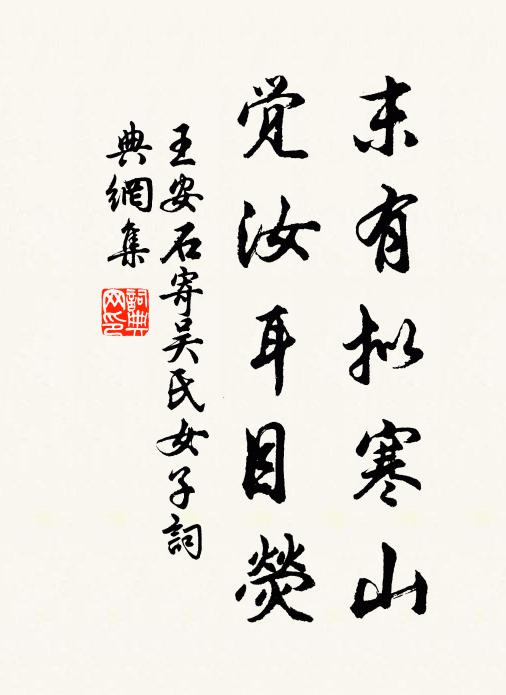 末有拟寒山
觉汝耳目荧
王安石寄吴氏女子詞
典網集
詞典
网印